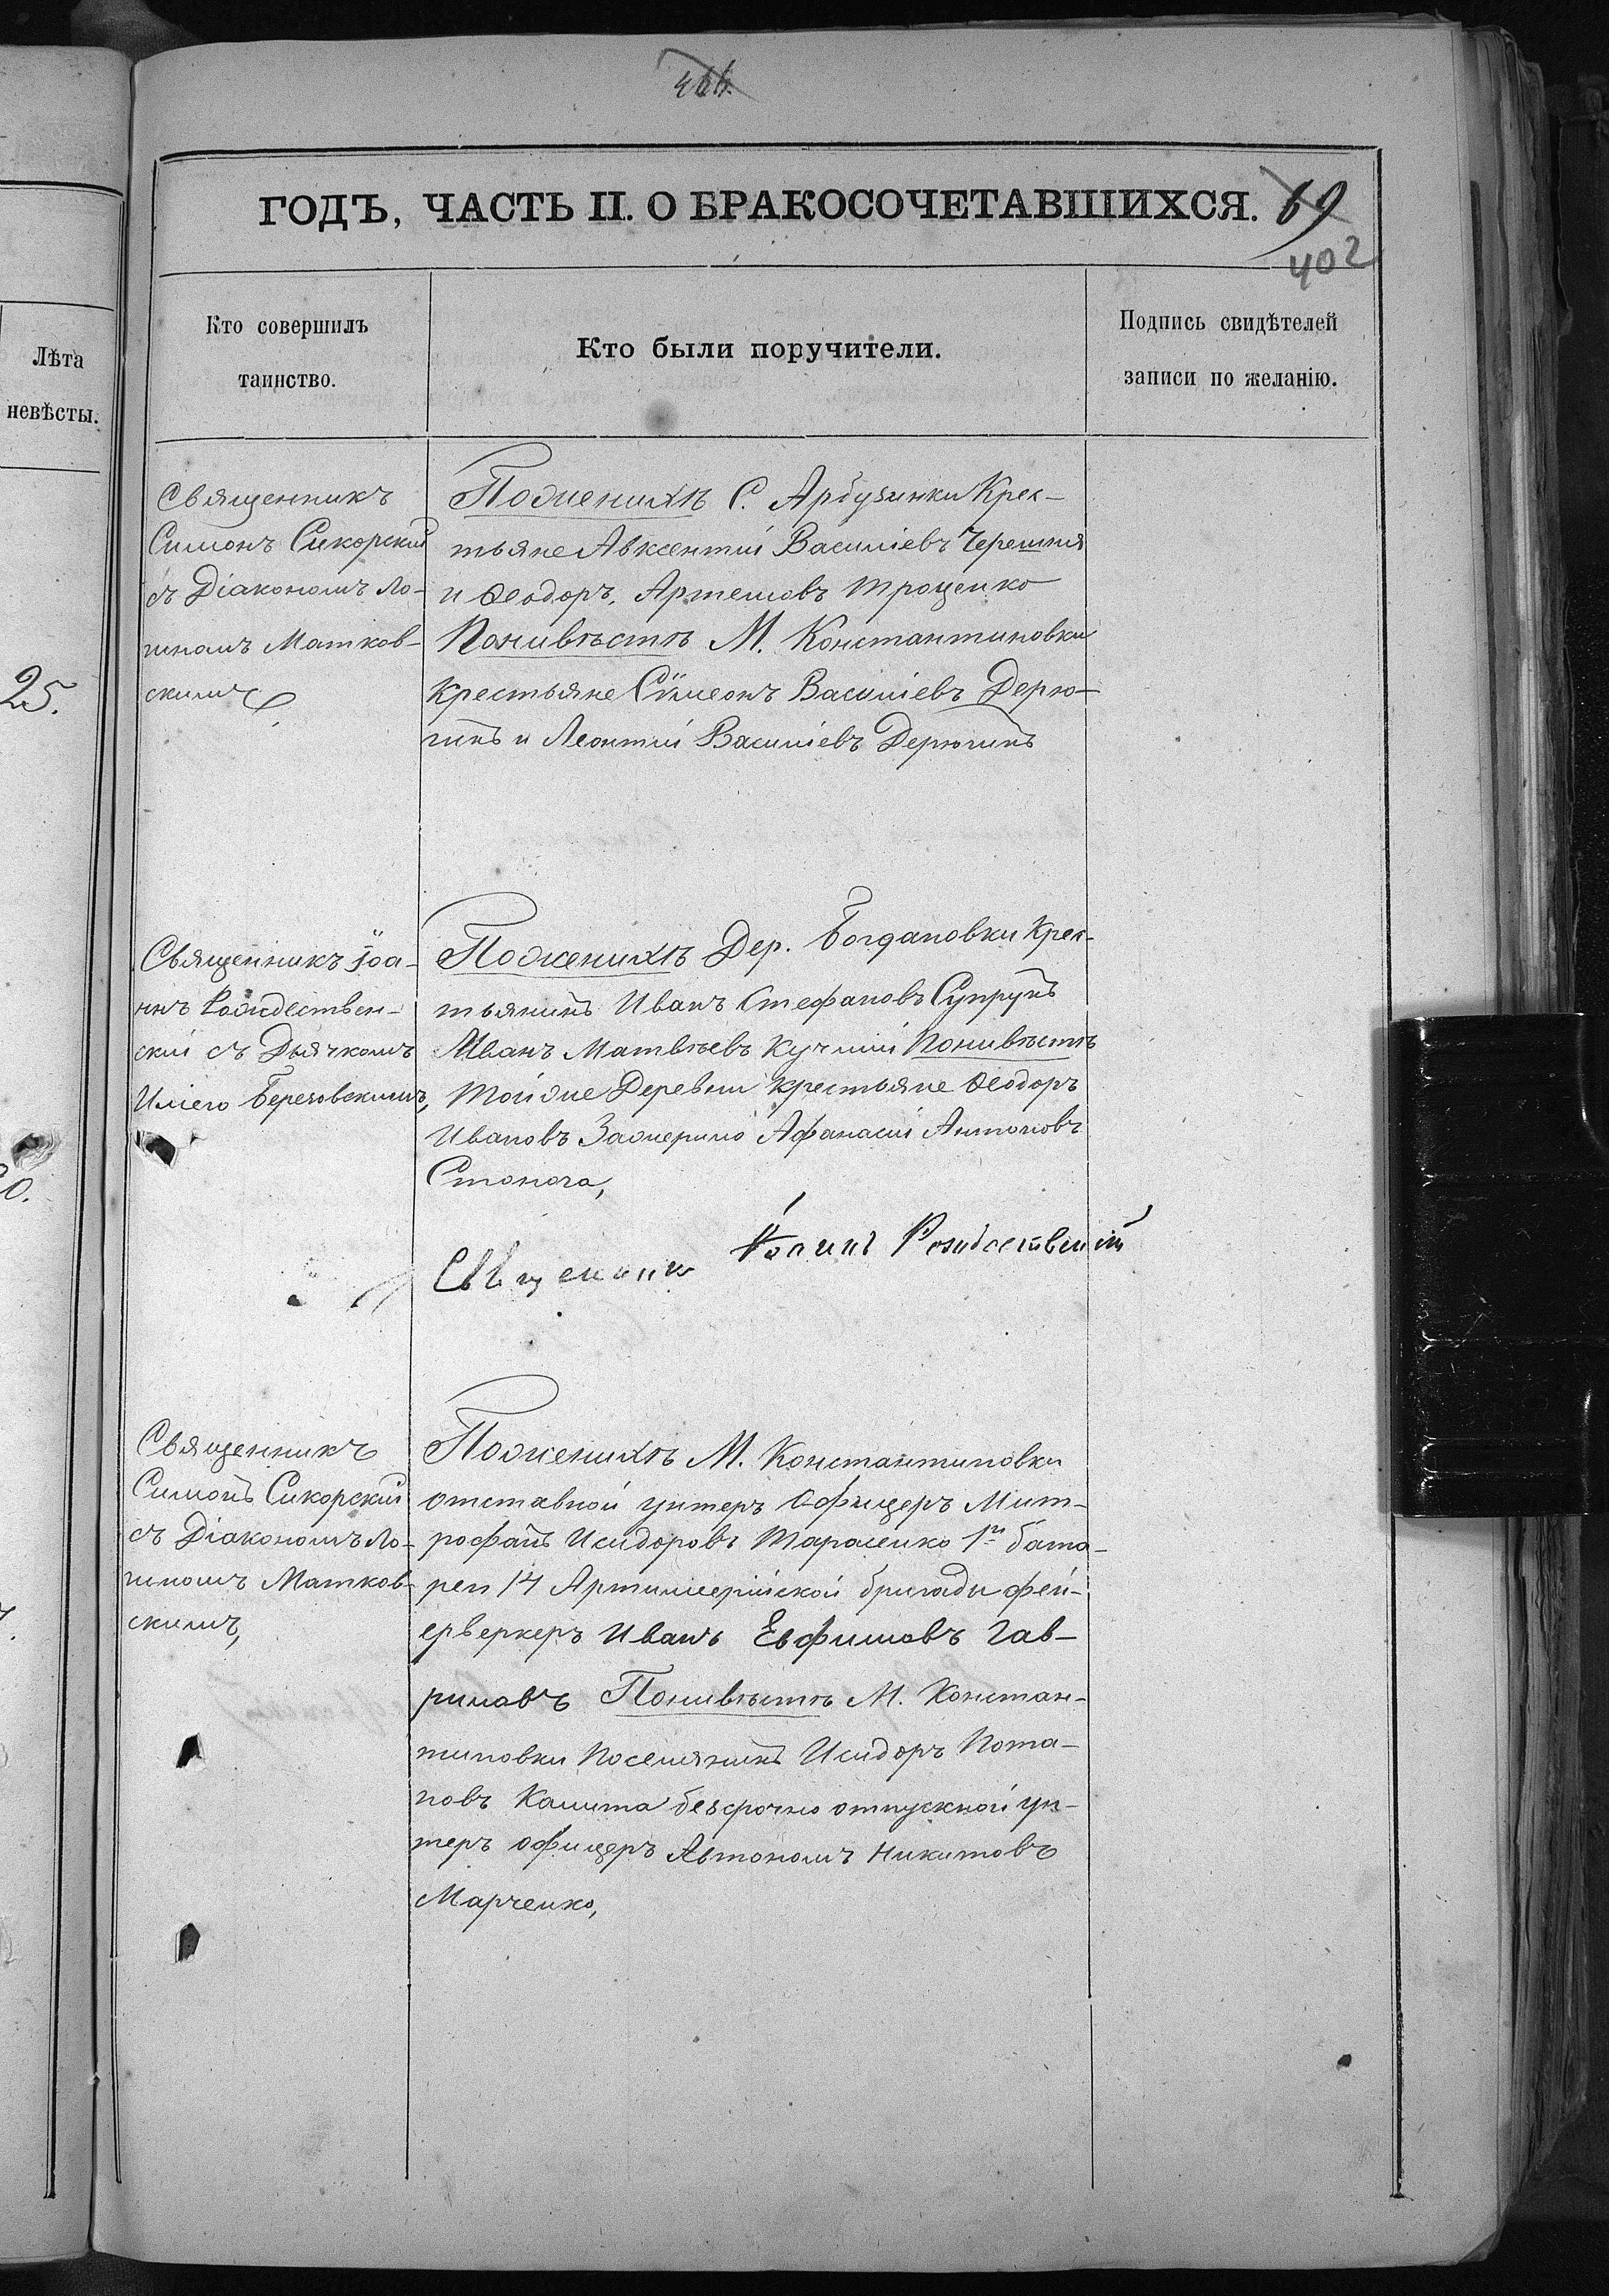 466.
ГОДЪ, ЧАСТЬ II. О БРАКОСОЧЕТАВШИХСЯ. 69
402
Лѣта
невѣсты.
Кто совершилъ
таинство.
Кто были поручители.
Подпись свидѣтелей
записи по желанію.
25.
Священникъ
Симонъ Сикорский
съ Діакономъ Ло-
гиномъ Матков-
скимъ
Поженихѣ С. Арбузинки Крес-
тьяне Авксентій Василіевъ Черешня
и Ѳеодоръ Артемовъ Троценко
Поневѣстѣ М. Константиновки
Крестьяне Сѵмеонъ Василіевъ Дерю-
гинъ и Леонтій Василіевъ Дерюгинъ
Священникъ Іоа-
ннъ Рождествен-
скій съ Дьячкомъ
Иліею Березовскимъ,
Поженихѣ Дер. Богдановки Крес-
тьянинъ Иванъ Стефановъ Супрунъ
Иванъ Матвѣевъ Кучмій Поневѣстѣ
Тойже Деревни крестьяне Ѳеодоръ
Ивановъ Зажерило Афанасій Антоновъ
Стонога,
Священникъ Іоаннъ Рождественскій
0.
Священникъ
Симонъ Сикорский
съ Діакономъ Ло-
гиномъ Матков-
скимъ,
Поженихѣ М. Константиновки
отставной унтеръ Офицеръ Мит-
рофанъ Исидоровъ Тарасенко 1й бата-
реи 14 Артиллерійской бригады фей-
ерверкеръ Иванъ Евфимовъ Гав-
риловъ Поневѣстѣ М. Констан-
тиновки Поселянинъ Исидоръ Пота-
повъ Калита безсрочно отпускной ун-
теръ офицеръ Автономъ Никитовъ
Марченко,